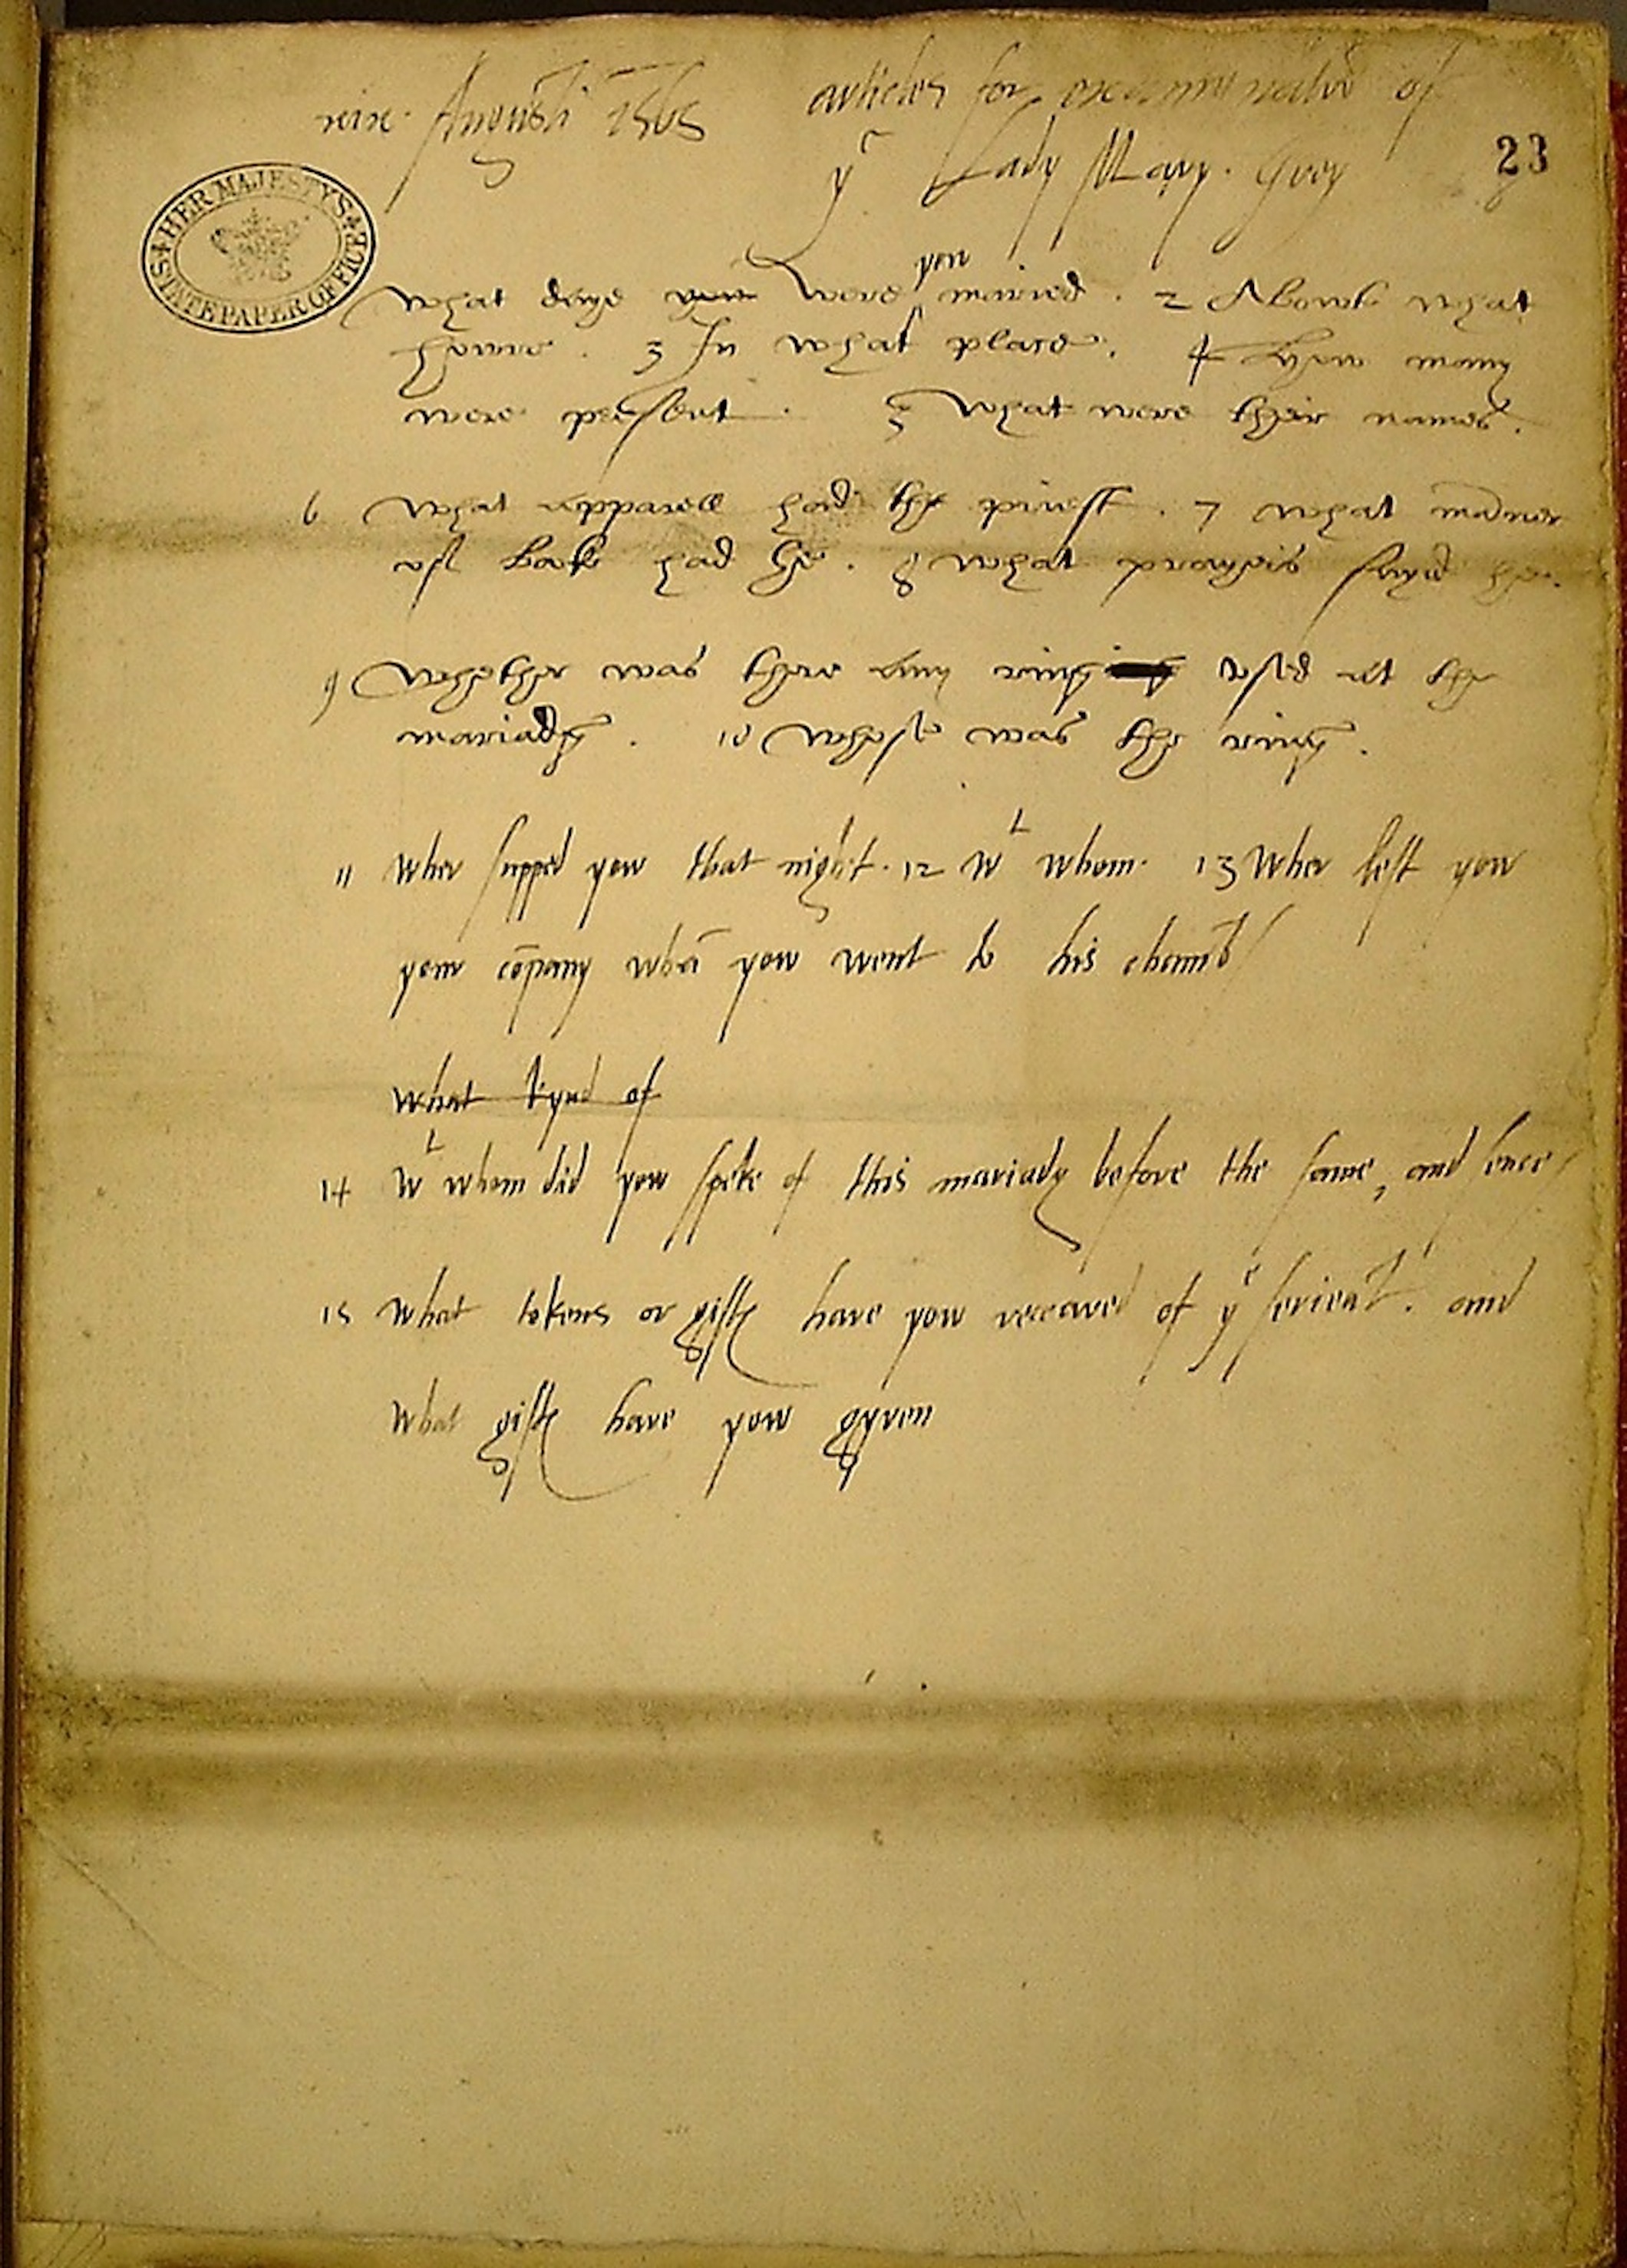 xix Augusti 1565 articles for examinatiō of
yᵉ Lady Mary. Grey
23
HER MAJESTYS STATE PAPER OFFICE
you
What daye you were maried . 2 About what
howre . 3 In what place . 4 how many
were present . 5 What were their names .
6 What apparell had the priest . 7 what maner
of book had he . 8 what prayers sayd he .
9 Whether was there any ring used at the
mariadg . 10 whose was the ring .
11 wher supped yow that night . 12 wᵗ whom . 13 Wher left yow
your cōpany whā yow went to his chamb
what kynd of
14 wᵗ whom did yow speke of this mariadg before the same, and sence
15 what tokens or gifts have yow receaved of yᵉ serieāt . and
what gifts have yow gyven